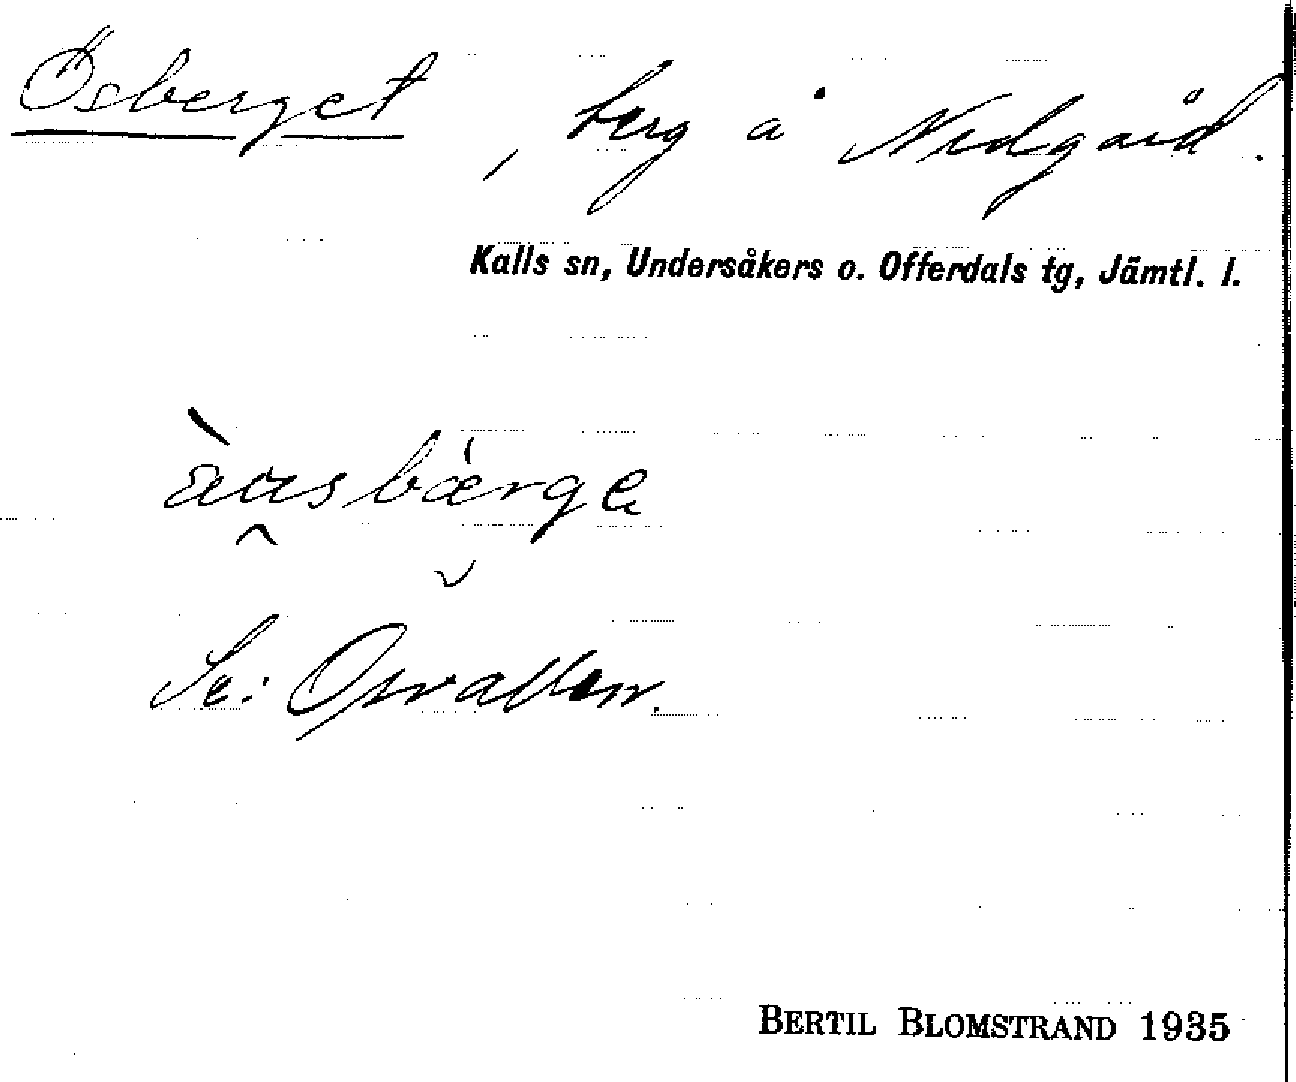 Ösberget, berg å Nedgård.
Kalls sn, Undersåkers o. Offerdals tg, Jämtl. l.
àusbærge
Se: Osvallen.
BERTIL BLOMSTRAND 1935